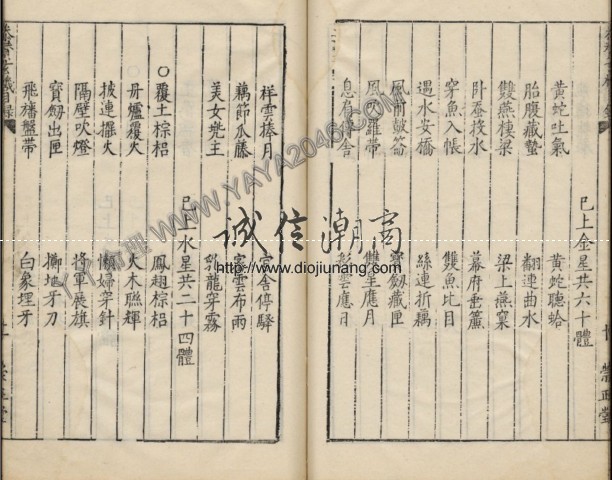 已上金星共六十體
黃蛇吐氣　黃蛇聽蛤
胎腹藏蟄　翻連曲水
雙燕棲梁　梁上燕窠
卧蚕投水　幕府垂簾
穿魚入帳　雙魚比目
遇水安橋　絲連折藕
風前皷　寶劔藏匣
風吹羅帶　雙星應月
息肩傳舍　彩雲應日
祥雲捧月　官舍停驛
藕節瓜藤　密雲布雨
美女兠主　卧龍穿霧
已上水星共二十四體
○覆土棕梠　鳳翅棕梠
○丹爐覆火　火木聯輝
拔連擺火　懶婦穿針
隔壁吹燈　將軍展旗
寶劔出匣　擲地牙刀
飛旛盤帶　白象埋牙
誠信潮商
http://www.diojiunang.com
WWW.YAYA2046.COM